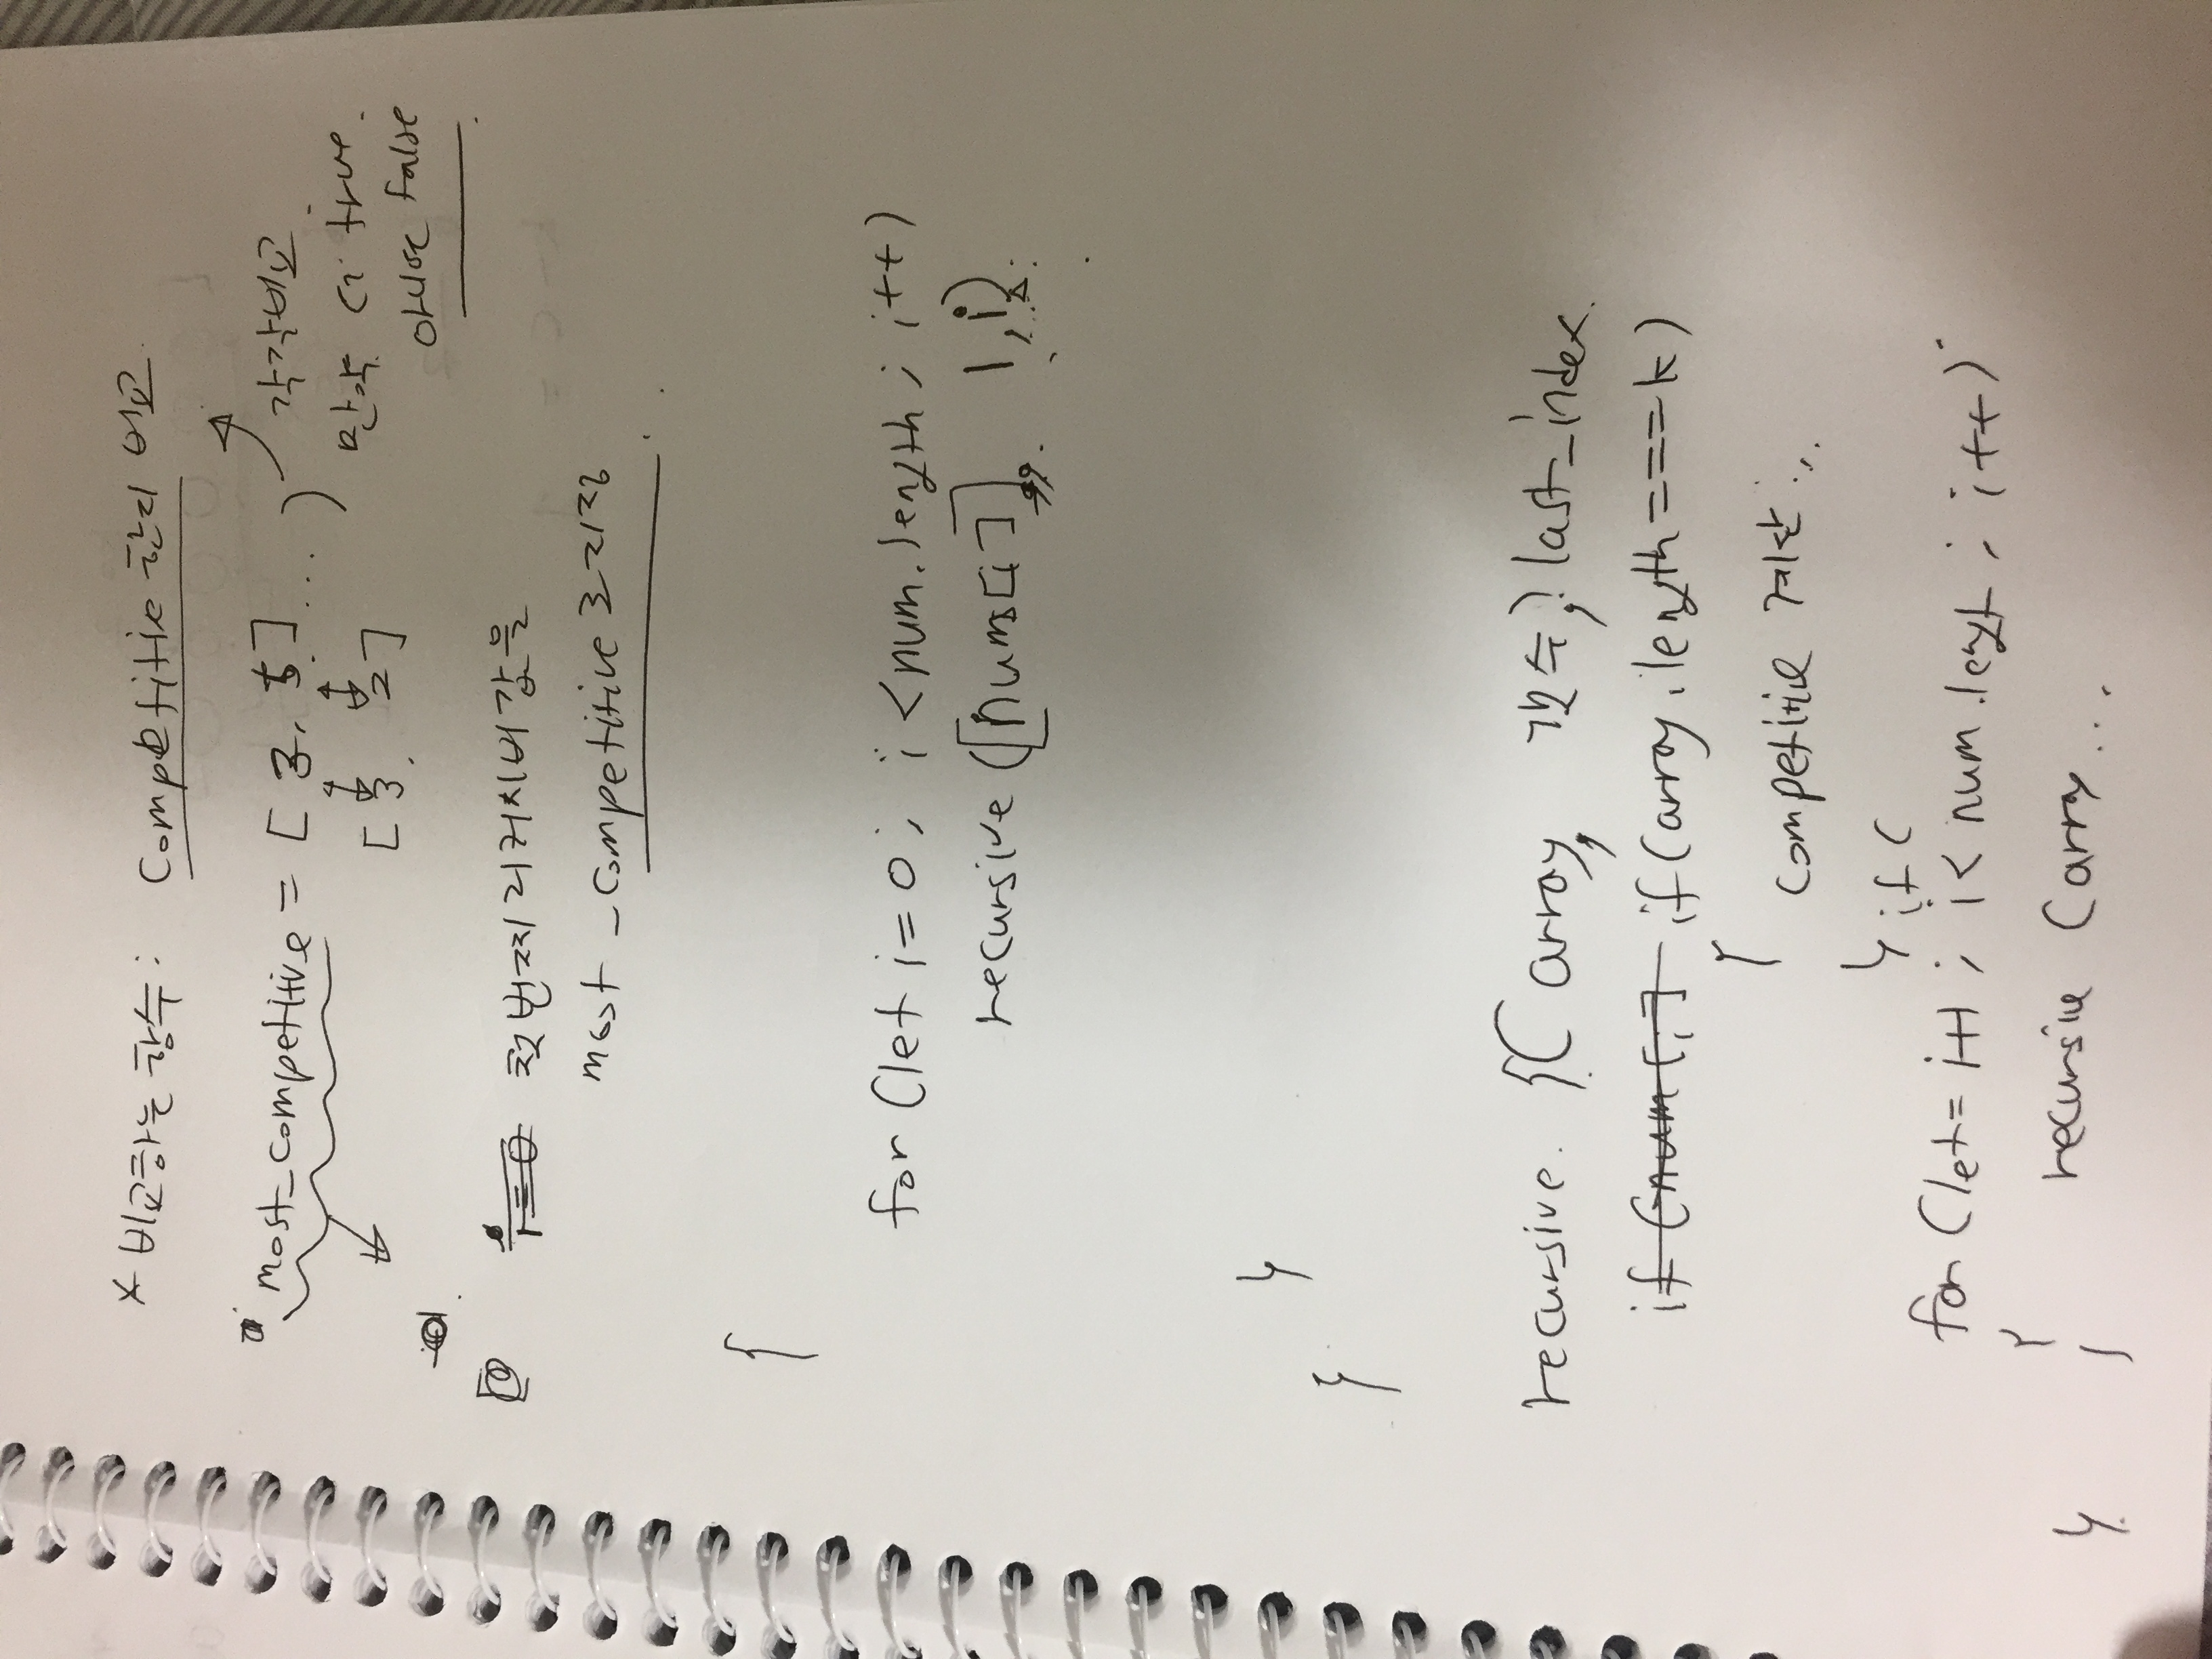 * 비교하는 함수: Competitie 한지 비교.
most_competitive = [3, 5]...)
[3, 2]
각각비교
만약 true.
아니면 false
i=0 첫번째 리커시버 값을
most_competitive로 지정.
{
for (let i=0; i<num.length; i++)
recursive ([nums[i]], 1, i).
}
}
recursive. {(array, 갯수,) last_index.
if (num[i] if(array.length===k)
{
competitie 계산..
} if (
for (let= i+1; i< num.lengt; i++)
{
recursie (array...
}